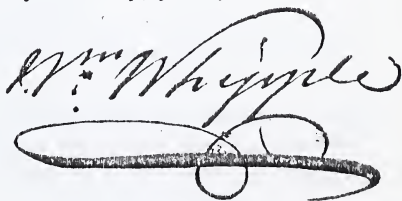 Wm: Whipple